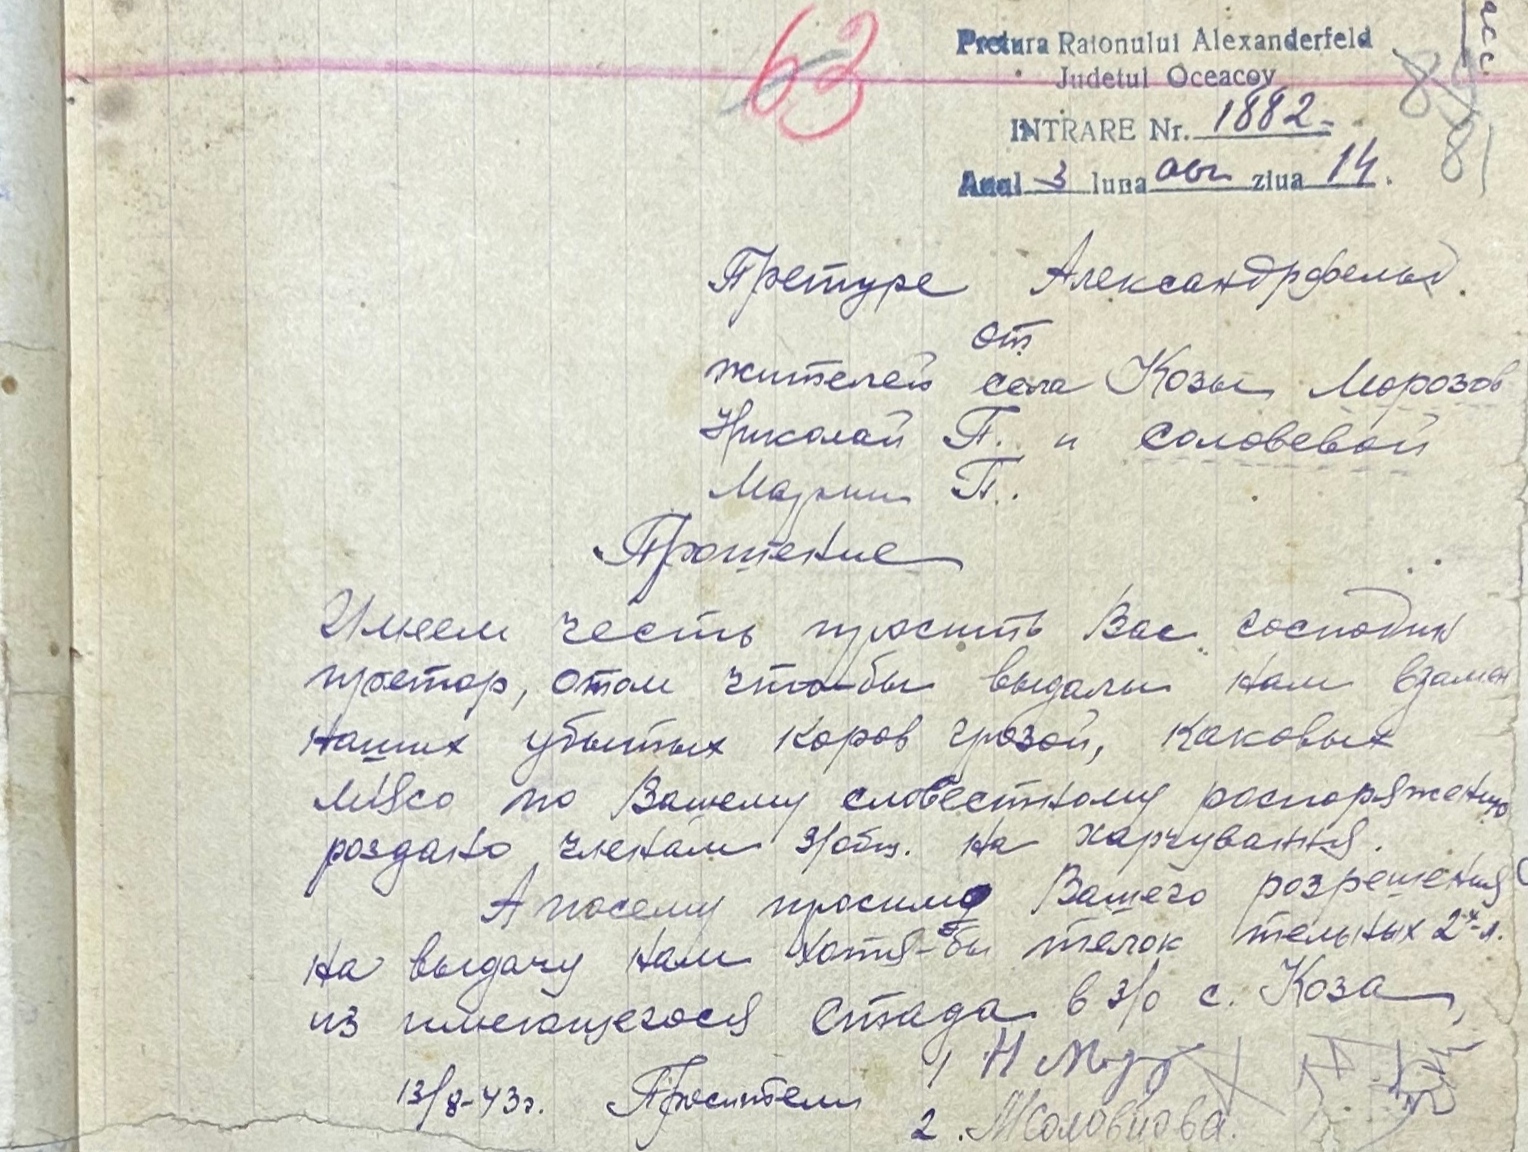 63
Pretura Raionului Alexanderfeld
Judetul Oceacov
INTRARE Nr. 1882
Anul 3 luna авг ziua 14.
81
Претуре Александрфельд.
от
жителей села Козы Морозов
Николай П. и Соловевой
Марии П.
Прошение
Имеем честь просить Вас господин
претор, отом что-бы выдалы нам взамен
наших убытых коров грозой, каковых
мясо по Вашему словестному роспоряжению
роздано членам з/общ. на харчування.
А посему просимо Вашего розрешения
на выдачу нам хотя-бы телок тельных 2х-л.
из имеющегося стада в з/о с. Коза
13/8-43г. Просители 1 Н Мор
2. МСоловиова.